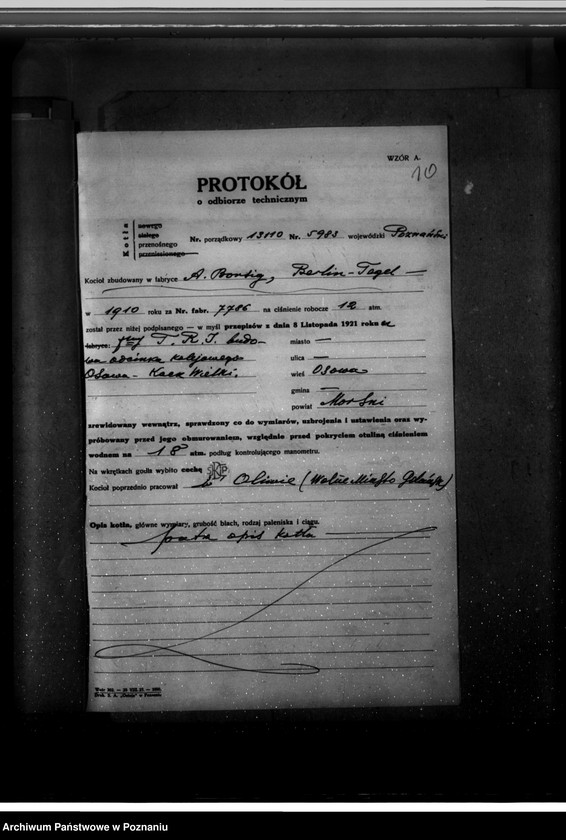 WZÓR A.
10
PROTOKÓŁ
o odbiorze technicznym
Kotła
nowego
stałego
przenośnego
przeniesionego
Nr. porządkowy 13110 Nr. 5983 wojewódzki Poznański
Kocioł zbudowany w fabryce A. Borsig, Berlin-Tegel —
w 1910 roku za Nr. fabr. 7786 na ciśnienie robocze 12 atm.
został przez niżej podpisanego — w myśl przepisów z dnia 8 Listopada 1921 roku
fabryce: T. R. I. budo-
wa odcinka kolejowego
Osowa - Kack Wielki.
miasto —
ulica —
wieś Osowa
gmina —
powiat Morski
zrewidowany wewnątrz, sprawdzony co do wymiarów, uzbrojenia i ustawienia oraz wy-
próbowany przed jego obmurowaniem, względnie przed pokryciem otuliną ciśnieniem
wodnem na 18 atm. podług kontrolującego manometru.
Na wkrętkach godła wybito cechę
Kocioł poprzednio pracował w Oliwie (Wolne Miasto Gdańsk)
Opis kotła, główne wymiary, grubość blach, rodzaj paleniska i ciągu.
opis kotła
Archiwum Państwowe w Poznaniu